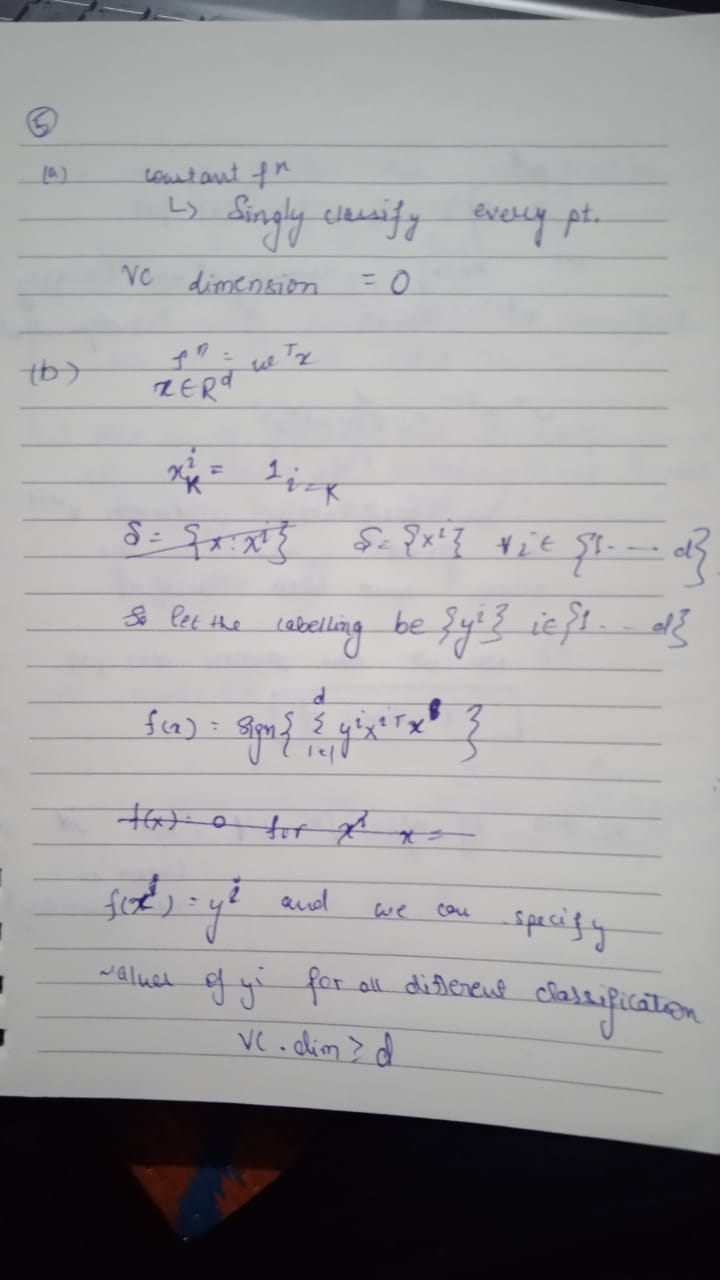 (5)
(a) constant fⁿ
↳ Singly classify every pt.
VC dimension = 0
(b) fⁿ = wᵀx
x ∈ Rᵈ
xᵢₖ = 1 i=k
S = {x : xⁱ} S = {xⁱ} ∀ i ∈ {1 . . . . d}
So let the labelling be {yⁱ} i ∈ {1 . . . d}
f(x) = sign { Σ yⁱxⁱᵀx }
d
i=1
f(x) = 0 for xʲ x =
f(xʲ) = yʲ and we can specify
values of yⁱ for all different classification
VC . dim ≥ d